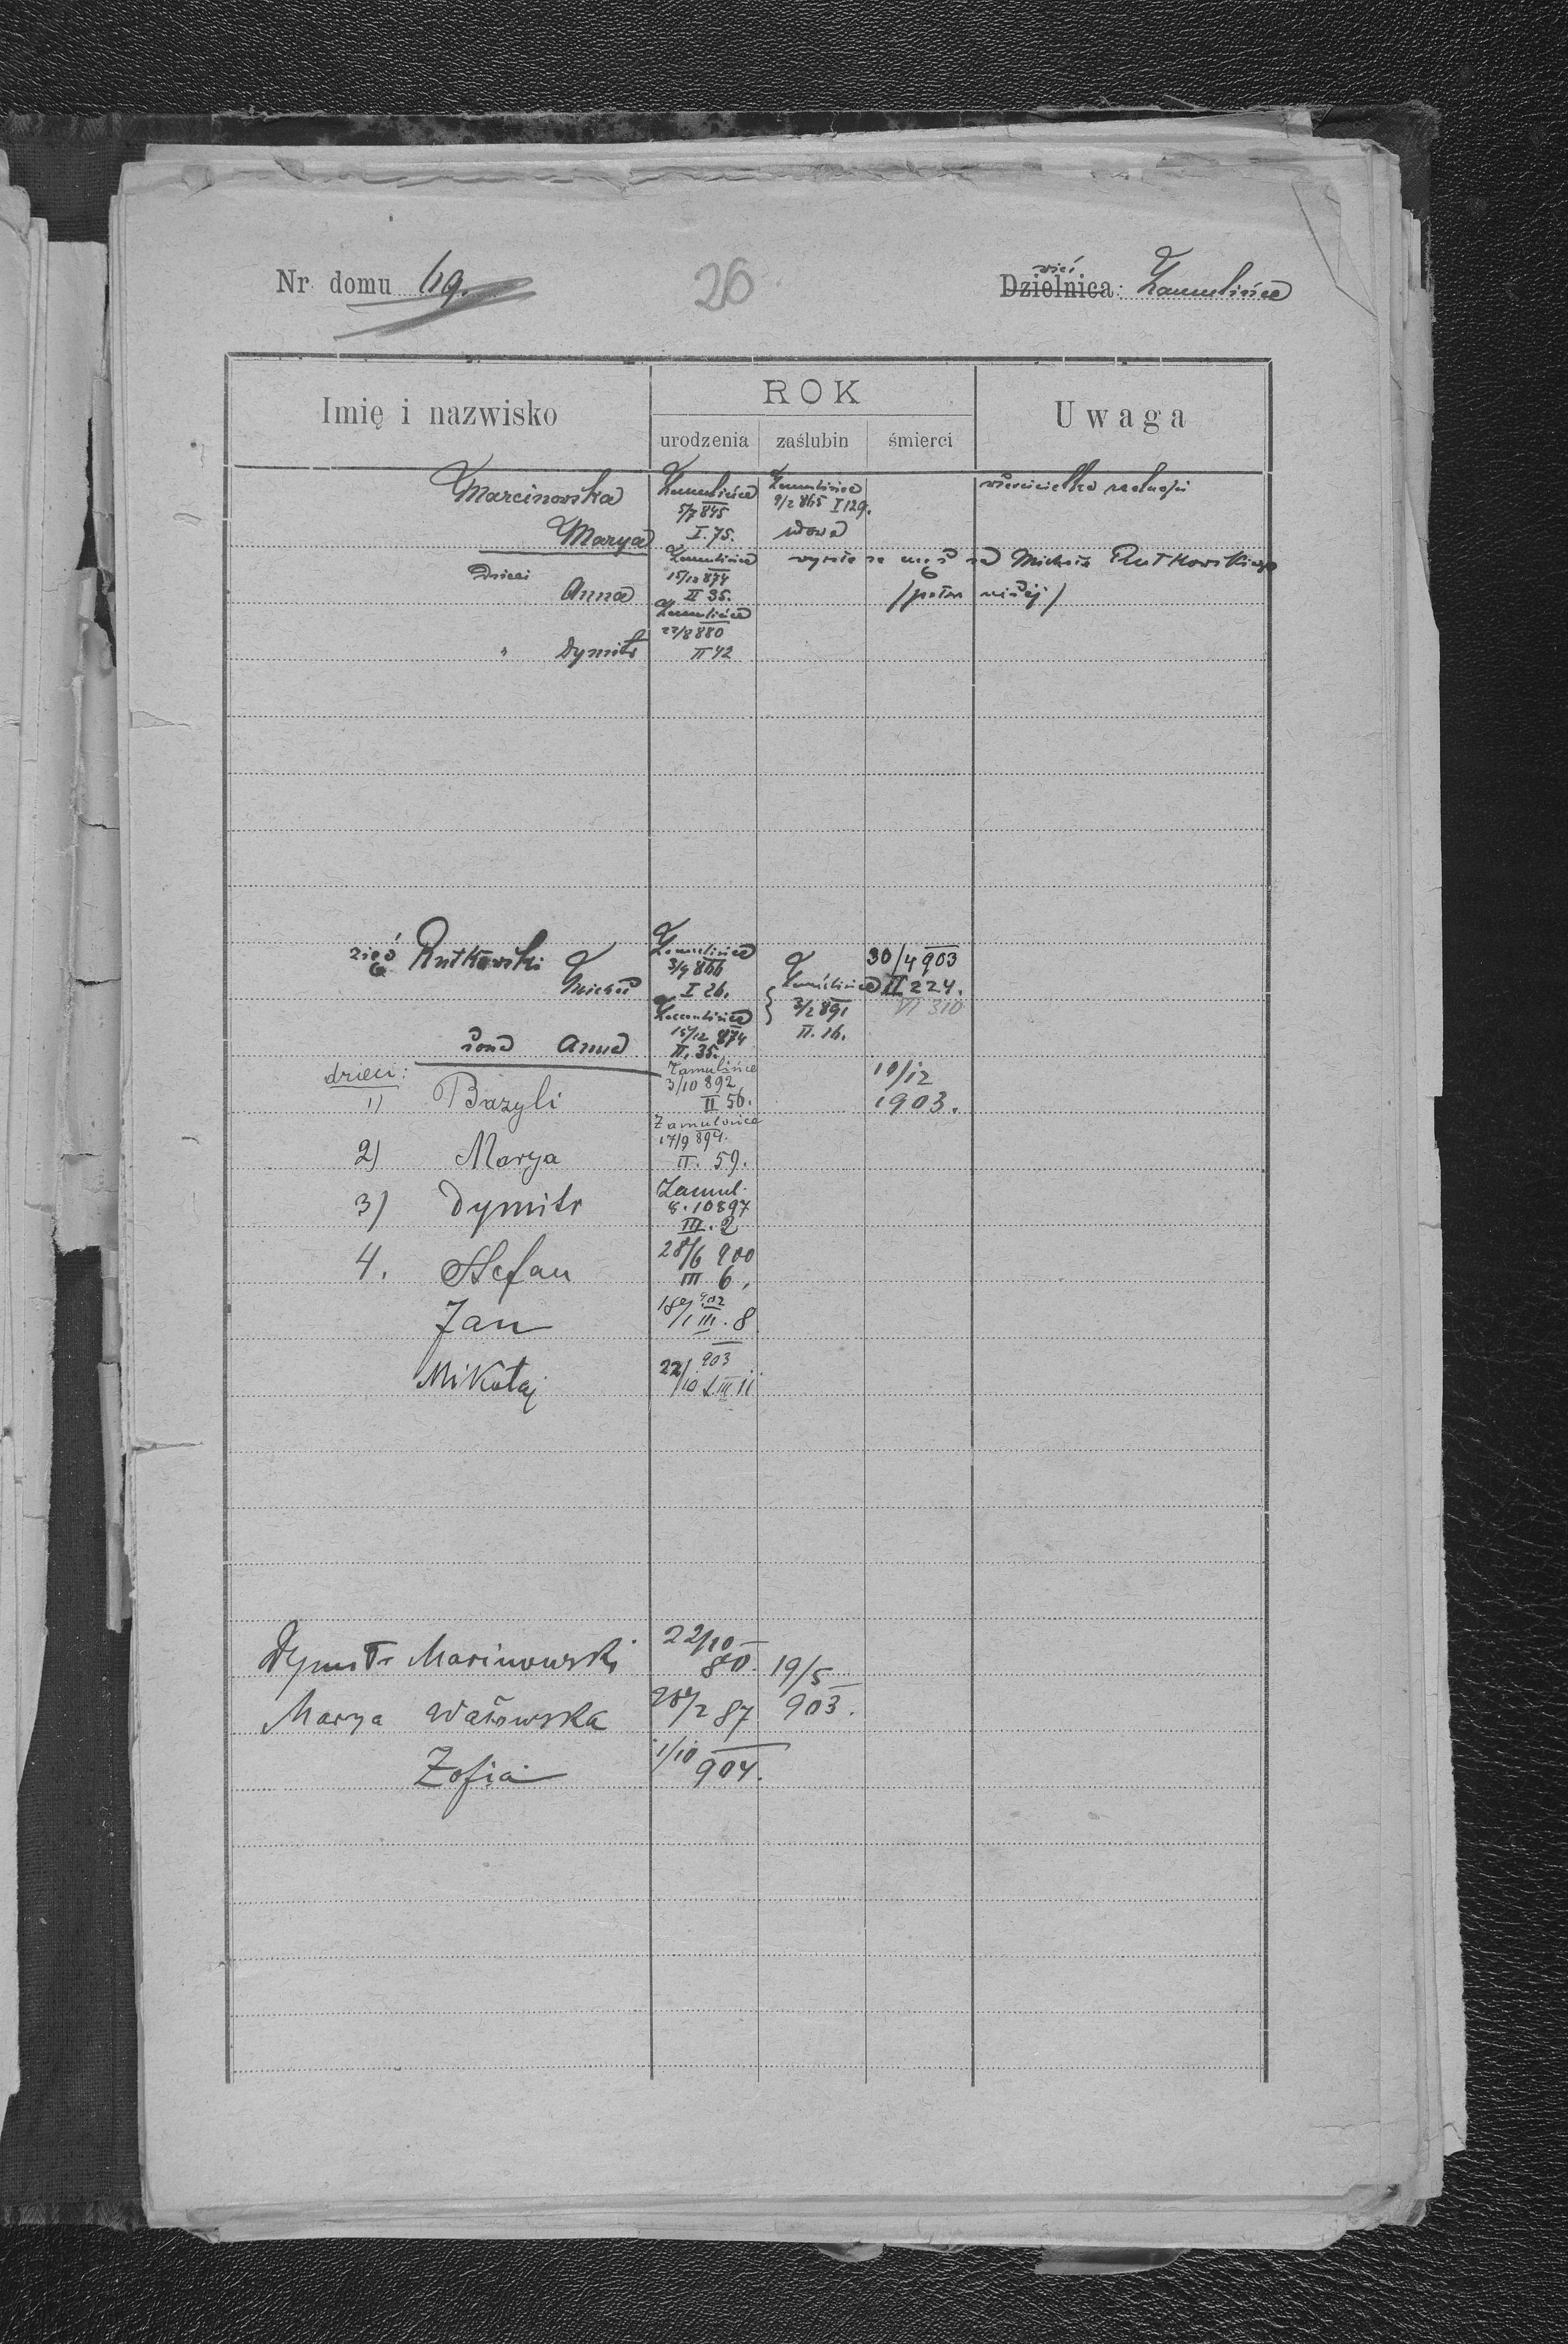 Nr domu 69.
26
wieś
Dzielnica: Zamulińce
Imię i nazwisko
ROK
Uwaga
urodzenia zaślubin śmierci
Marcinowska Zamulińce Zamulińce właścicielka realności
5/7 845 9/2 865 I 129.
Marya I. 75. wdowa
dzieci Zamulińce wyszła za mąż za Michała Rutkowskiego
15/12 874
Anna II 35. /patrz niżej/
Zamulińce
22/8 880
" Dymitr II 42
zięć Rutkowski Zamulińce 30/4 903
3/9 866
Michał I 26. Zamulińce II 224.
Zamulińce 3/2 891 VI 310
15/12 874 II. 16.
żona Anna II. 35.
dzieci: Zamulińce 10/12
3/10 892
1) Bazyli II 56. 1903.
Zamulińce
17/9 894.
2) Marya II. 59.
Zamul.
3) Dymitr 8.10 897
III. 2
4. Stefan 28/6 900
III 6.
Jan 18/1 902 III. 8
Mikołaj 22/10 903
III 11
Dymitr Marcinowski 22/10
80. 19/5
Marya 28/2 87 903.
Zofia 1/10 904.